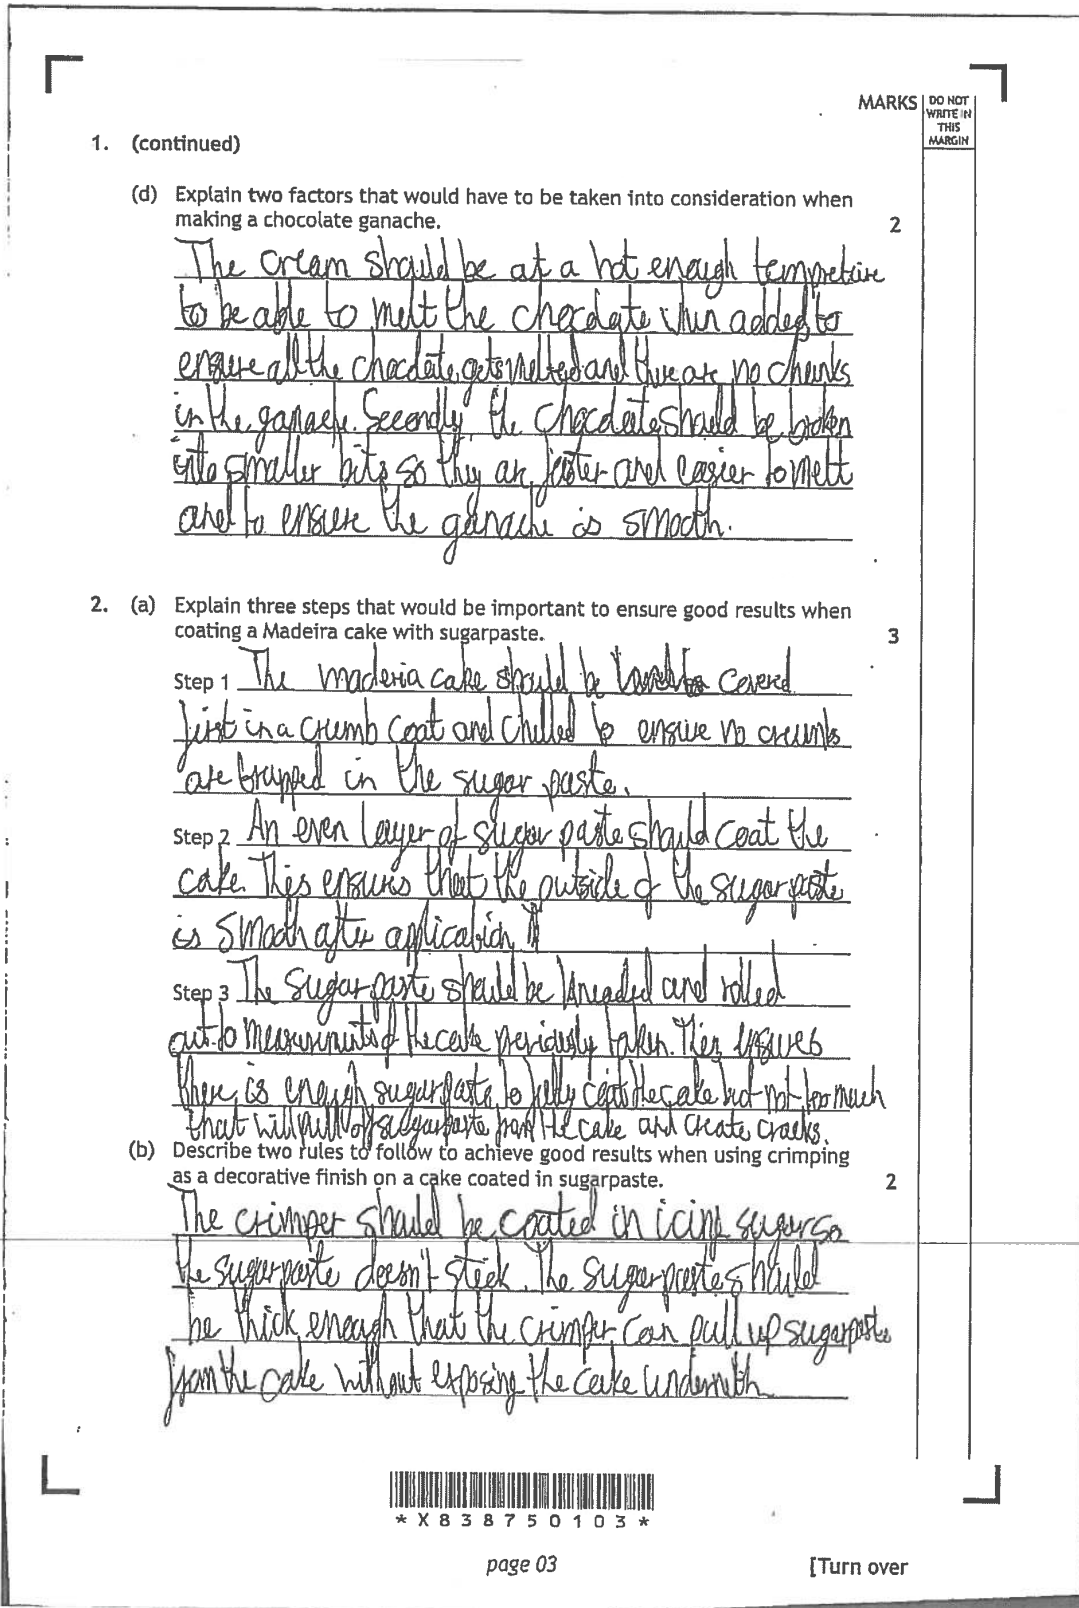 MARKS
DO NOT
WRITE IN
THIS
MARGIN
1. (continued)
(d) Explain two factors that would have to be taken into consideration when
making a chocolate ganache. 2
The cream should be at a hot enough tempreture
to be able to melt the chocolate when added to
ensure all the chocolate gets melted and there are no chunks
in the ganache. Secondly the chocolate should be broken
into smaller bits so they are faster and easier to melt
and to ensure the ganache is smooth.
2. (a) Explain three steps that would be important to ensure good results when
coating a Madeira cake with sugarpaste. 3
Step 1 The maderia cake should be covered
first in a crumb coat and chilled to ensure no crumbs
are trapped in the sugar paste.
Step 2 An even layer of sugar paste should coat the
cake. This ensures that the outside of the sugar paste
is smooth after application
Step 3 The sugar paste should be kneaded and rolled
out to measurements of the cake previously taken. This ensures
there is enough sugarpaste to fully coat the cake but not too much
that will pull off sugarpaste from the cake and create cracks.
(b) Describe two rules to follow to achieve good results when using crimping
as a decorative finish on a cake coated in sugarpaste. 2
The crimper should be coated in icing sugar so
the sugarpaste doesn't stick. The sugarpaste should
be thick enough that the crimper can pull up sugarpaste
from the cake without exposing the cake underneth.
*X838750103*
page 03
[Turn over